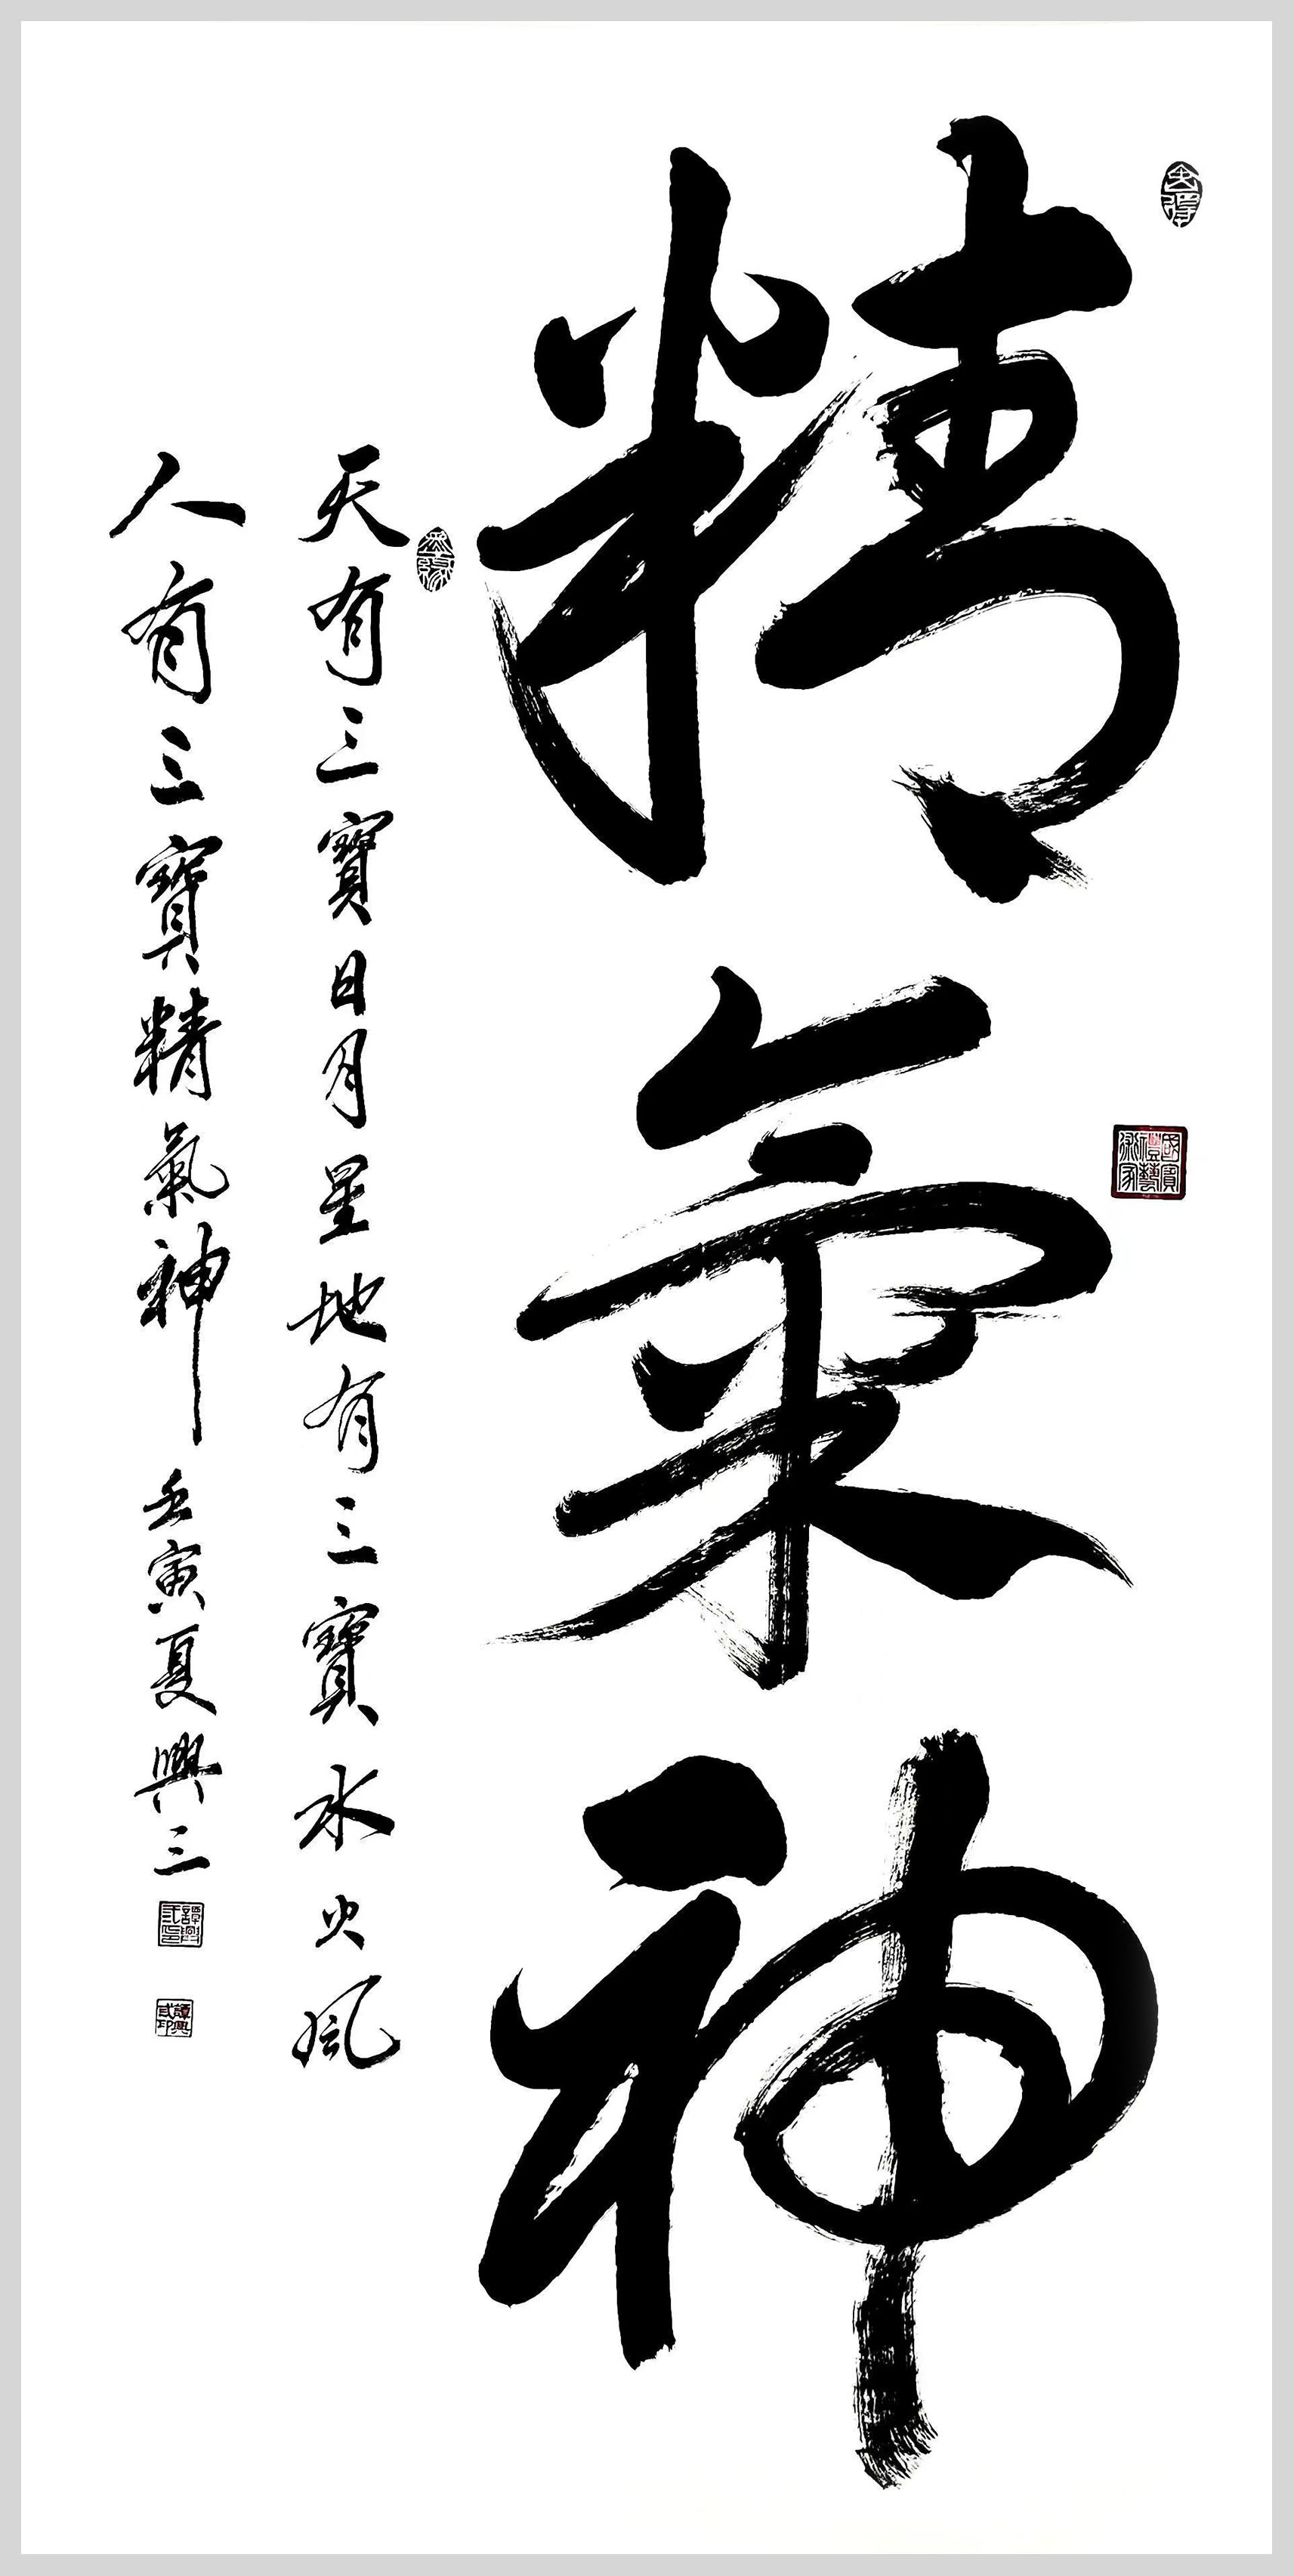 精氣神
天有三寶日月星地有三寶水火風
人有三寶精氣神壬寅夏興三
國賓禮藝術家